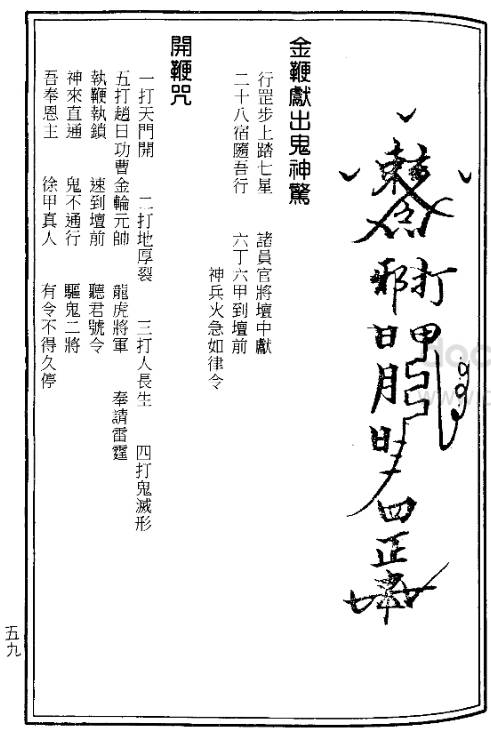 打邪甲
日月
四正
金鞭獻出鬼神驚
行罡步上踏七星　諸員官將壇中獻
二十八宿隨吾行　六丁六甲到壇前
神兵火急如律令
開鞭咒
一打天門開　二打地厚裂　三打人長生　四打鬼滅形
五打趙日功曹金輪元帥　龍虎將軍　奉請雷霆
執鞭執鎖　速到壇前　聽君號令
神來直通　鬼不通行　驅鬼二將
吾奉恩主　徐甲真人　有令不得久停
五九